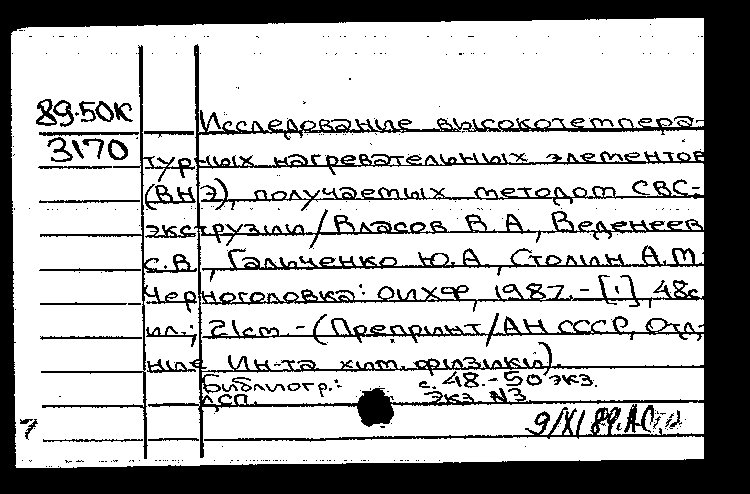 89-50К
Исследование высокотемпера-
3170
турных нагревательных элементов
(ВНЭ), получаемых методом СВС-
экструзии/Власов В.А., Веденеев
С.В., Гальченко Ю.А., Столин А.М.
Черноголовка: ОИХФ, 1987.-[1], 48с.
ил.; 21cm.-(Препринт/АН СССР, Отд-
ние Ин-та хим. физики).
Библиогр.: с. 48.-50 экз.
ДСП. Экз. N3
7
9/XI 89.